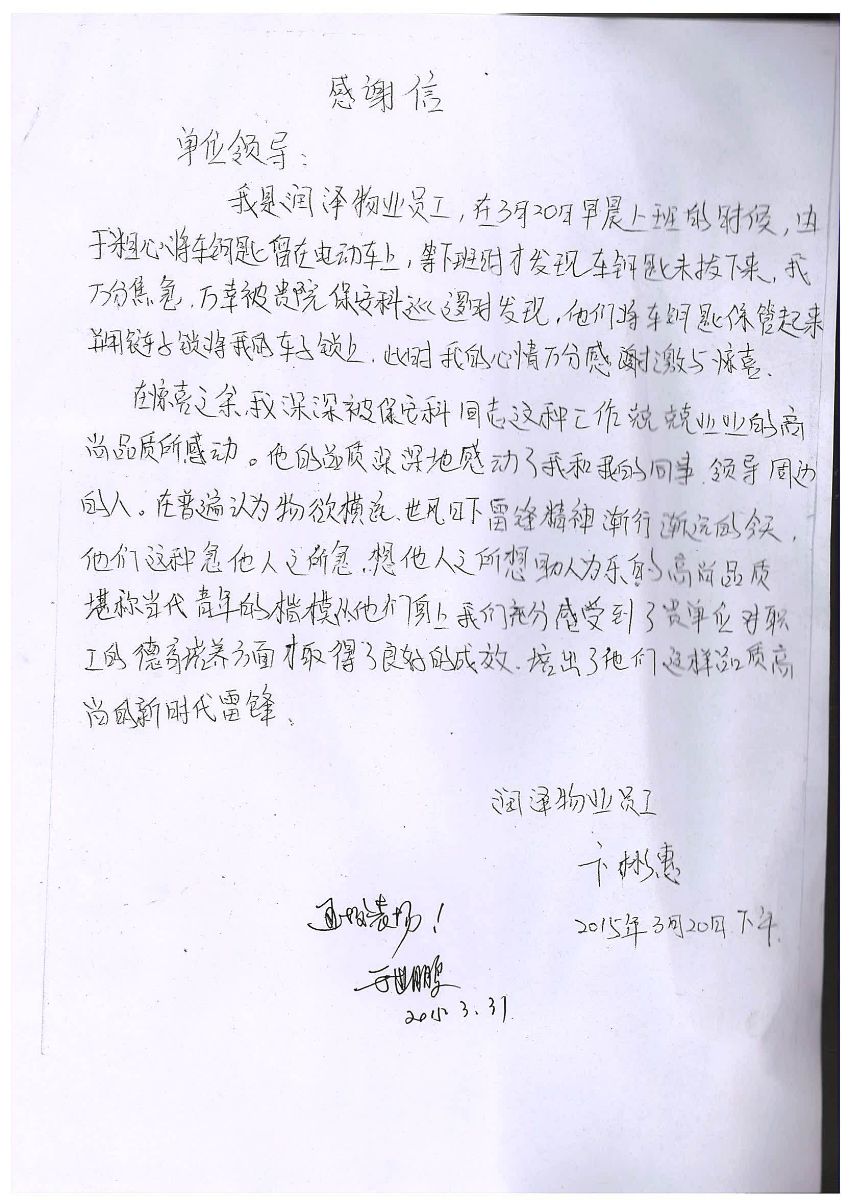 感谢信
单位领导：
我是润泽物业员工，在3月20日早晨上班的时候，由
于粗心将车钥匙留在电动车上，等下班时才发现车钥匙未拔下来，我
万分焦急，万幸被贵院保安科巡逻时发现，他们将车钥匙保管起来
并用链子锁将我的车子锁上，此时我的心情万分感谢激与惊喜、
在惊喜之余，我深深被保安科同志这种工作兢兢业业的高
尚品质所感动。他的品质深深地感动了我和我的同事、领导周边
的人。在普遍认为物欲横流、世风日下雷锋精神渐行渐远的今天，
他们这种急他人之所急，想他人之所想助人为乐的高尚品质
堪称当代青年的楷模从他们身上我们充分感受到了贵单位对职
工的德育培养方面才取得了良好的成效、培出了他们这样品质高
尚的新时代雷锋、
润泽物业员工
卞彬惠
2015年3月20日下午
通报表扬！
2015.3.31